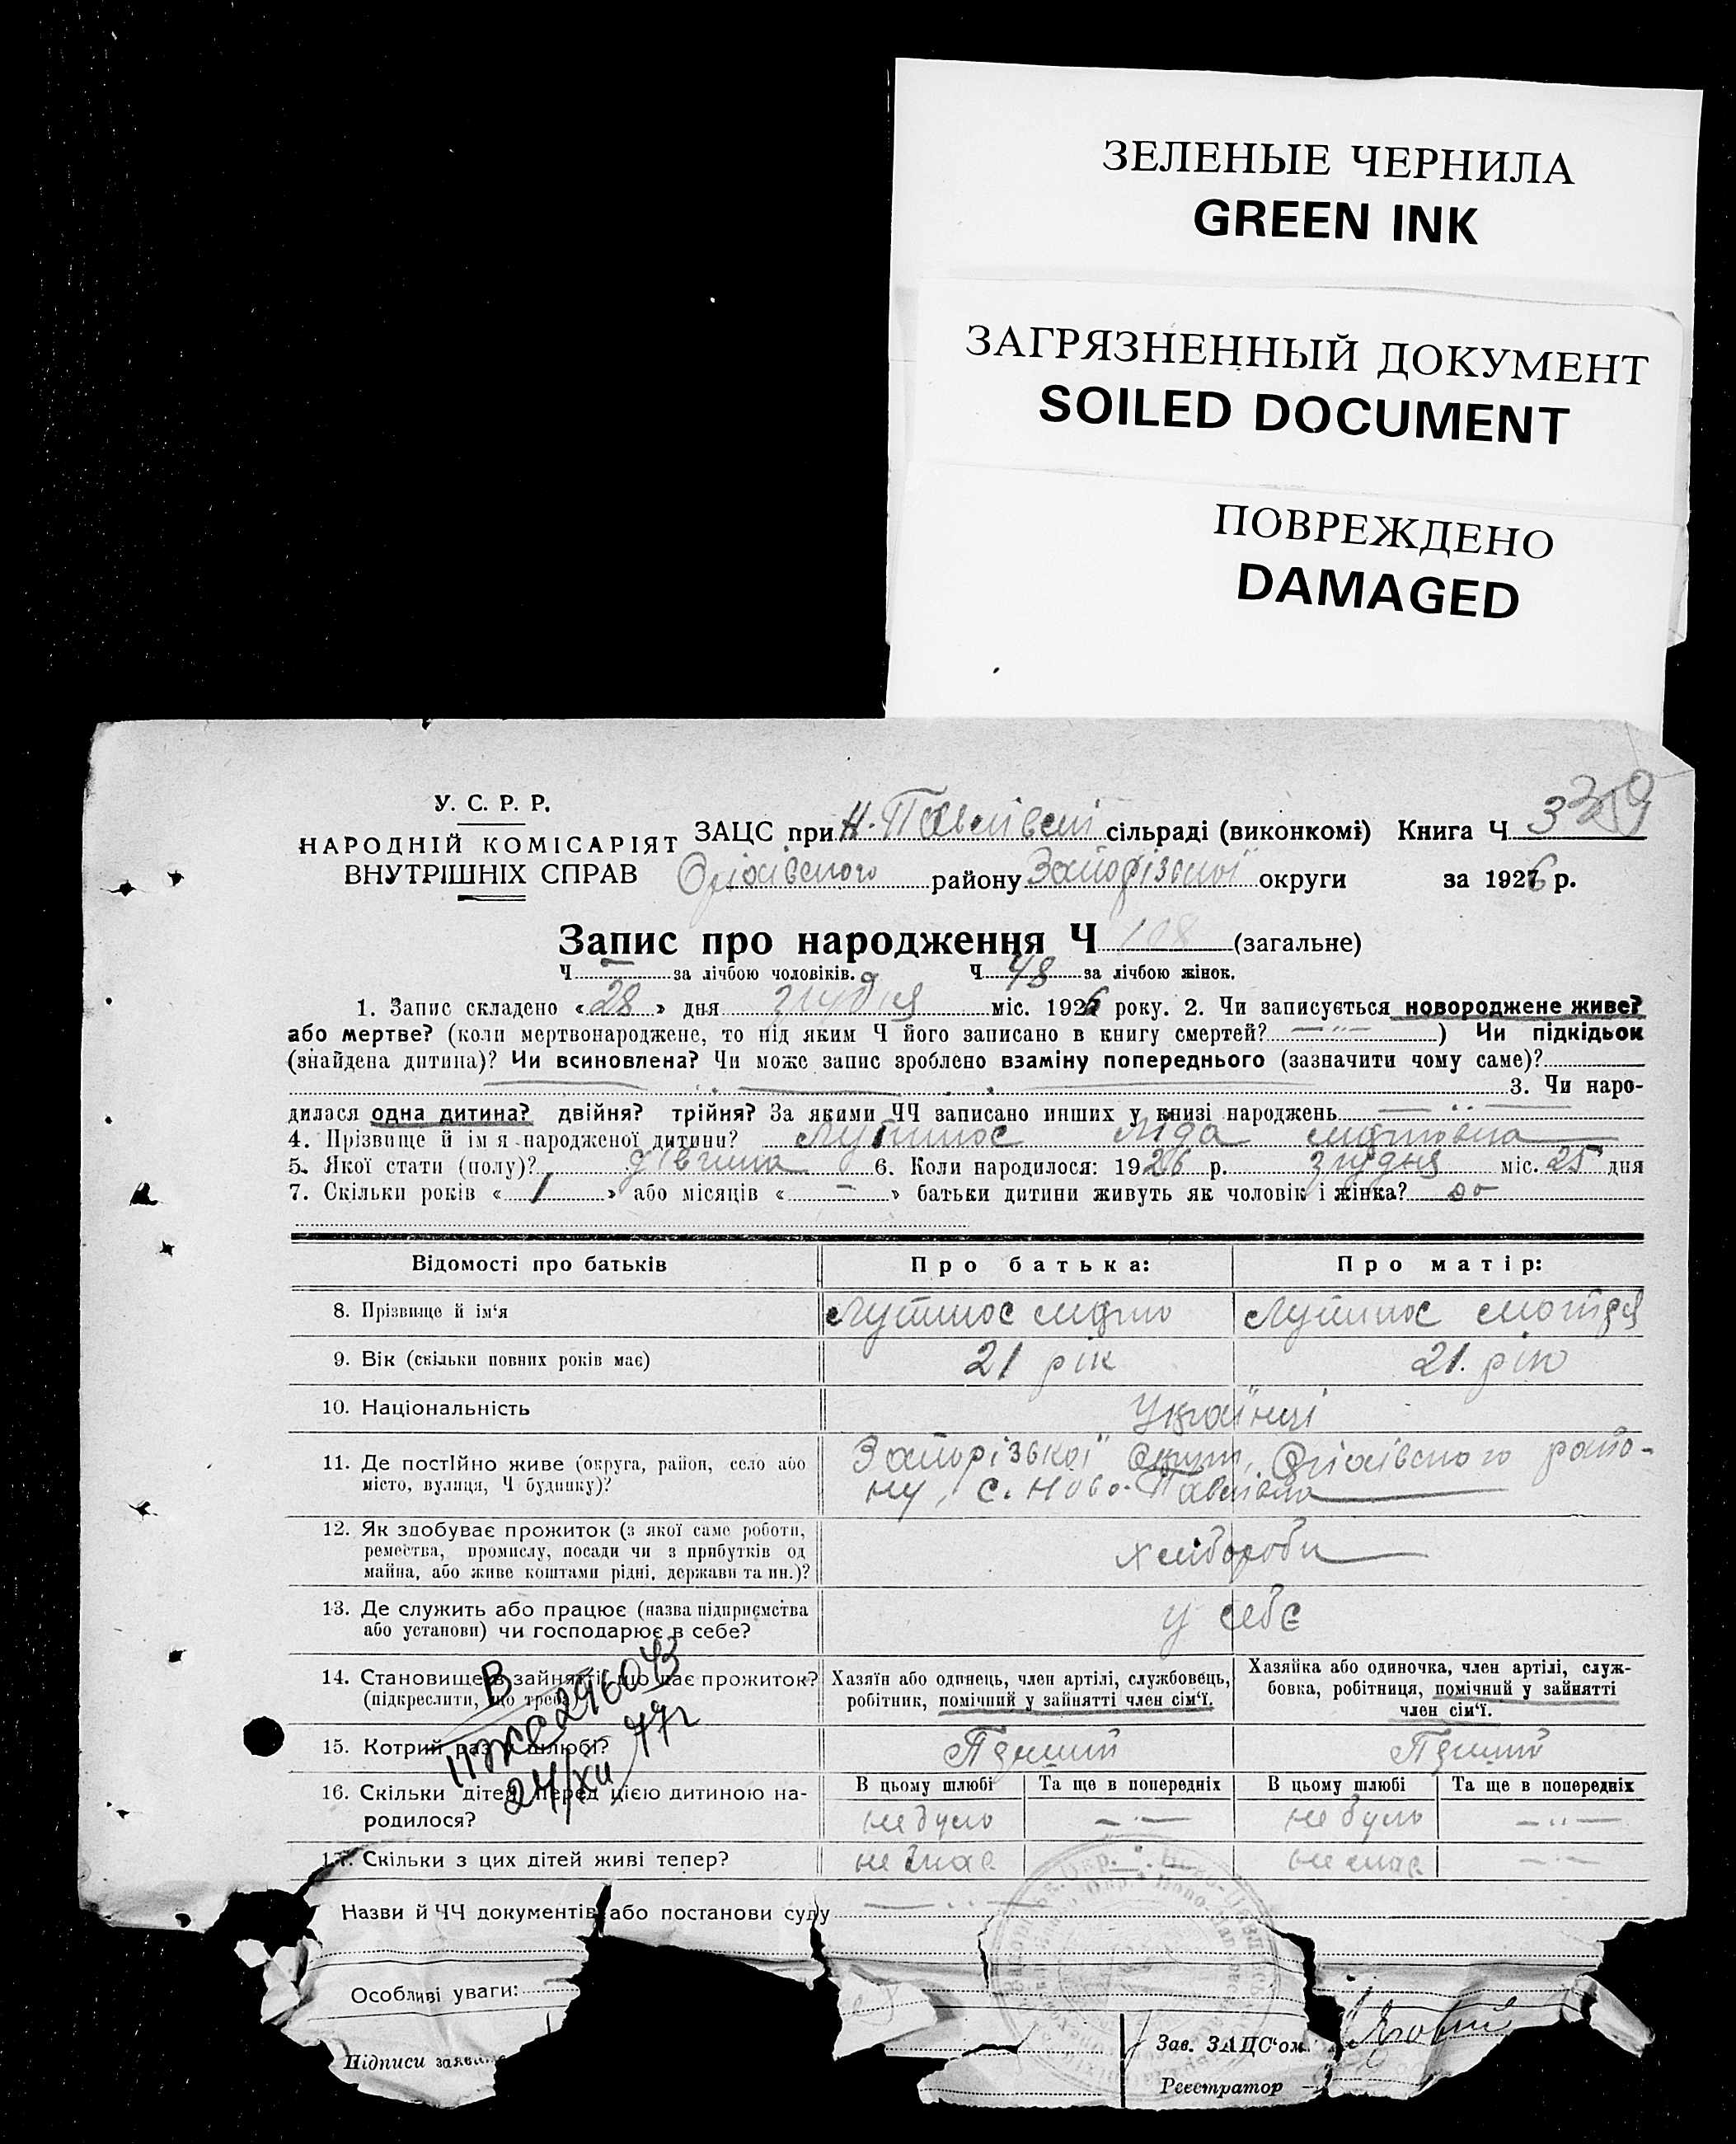 ЗЕЛЕНЫЕ ЧЕРНИЛА
GREEN INK
ЗАГРЯЗНЕННЫЙ ДОКУМЕНТ
SOILED DOCUMENT
ПОВРЕЖДЕНО
DAMAGED
У. С. Р. Р.
НАРОДНІЙ КОМІСАРІЯТ
ВНУТРІШНІХ СПРАВ
ЗАЦС при Н. Павлівскі сільраді (виконкомі) Книга Ч 3
Оріхівского району Запорізької округи за 1926 р.
Запис про народження Ч 108 (загальне)
Ч — за лічбою чоловіків. Ч 48 за лічбою жінок.
1. Запис складено «28» дня грудня міс. 1926 року. 2. Чи записується новороджене живе?
або мертве? (коли мертвонароджене, то під яким Ч його записано в книгу смертей? —"— ) Чи підкідьок
(знайдена дитина)? Чи всиновлена? Чи може запис зроблено взаміну попереднього (зазначити чому саме)?
3. Чи наро-
дилася одна дитина? двійня? трійня? За якими ЧЧ записано инших у книзі народжень — " —
4. Прізвище й ім я народженої дитини? Ліда
5. Якої стати (полу)? дівчина 6. Коли народилося: 1926 р. грудня міс. 25 дня
7. Скільки років «1» або місяців «—» батьки дитини живуть як чоловік і жінка?
Відомості про батьків Про батька: Про матір:
8. Прізвище й ім'я
9. Вік (скільки повних років має) 21 рік 21. рік
10. Національність Українці
11. Де постійно живе (округа, район, село або
місто, вулиця, Ч будинку)?
Запорізької округи, Оріхівского райо-
ну, с. Ново-Павлівка
12. Як здобуває прожиток (з якої саме роботи,
ремества, промислу, посади чи з прибутків од
майна, або живе коштами рідні, держави та ин.)?
хлібороби
13. Де служить або працює (назва підприємства
або установи) чи господарює в себе?
у себе
14. Становище в зайнятті, що дає прожиток?
(підкреслити, що треба)
Хазяїн або одинець, член артілі, службовець,
робітник, помічний у зайнятті член сім'ї.
Хазяйка або одиночка, член артілі, служ-
бовка, робітниця, помічний у зайнятті
член сім'ї.
24/XII 77г
15. Котрий раз у шлюбі? Перший Перший
16. Скільки дітей перед цією дитиною на-
родилося?
В цьому шлюбі Та ще в попередніх В цьому шлюбі Та ще в попередніх
не було — " — не було — " —
17. Скільки з цих дітей живі тепер? не має — не має — " —
Назви й ЧЧ документів або постанови суду
Особливі уваги:
Підписи заяв
Зав. ЗАЦС'ом
Реєстратор